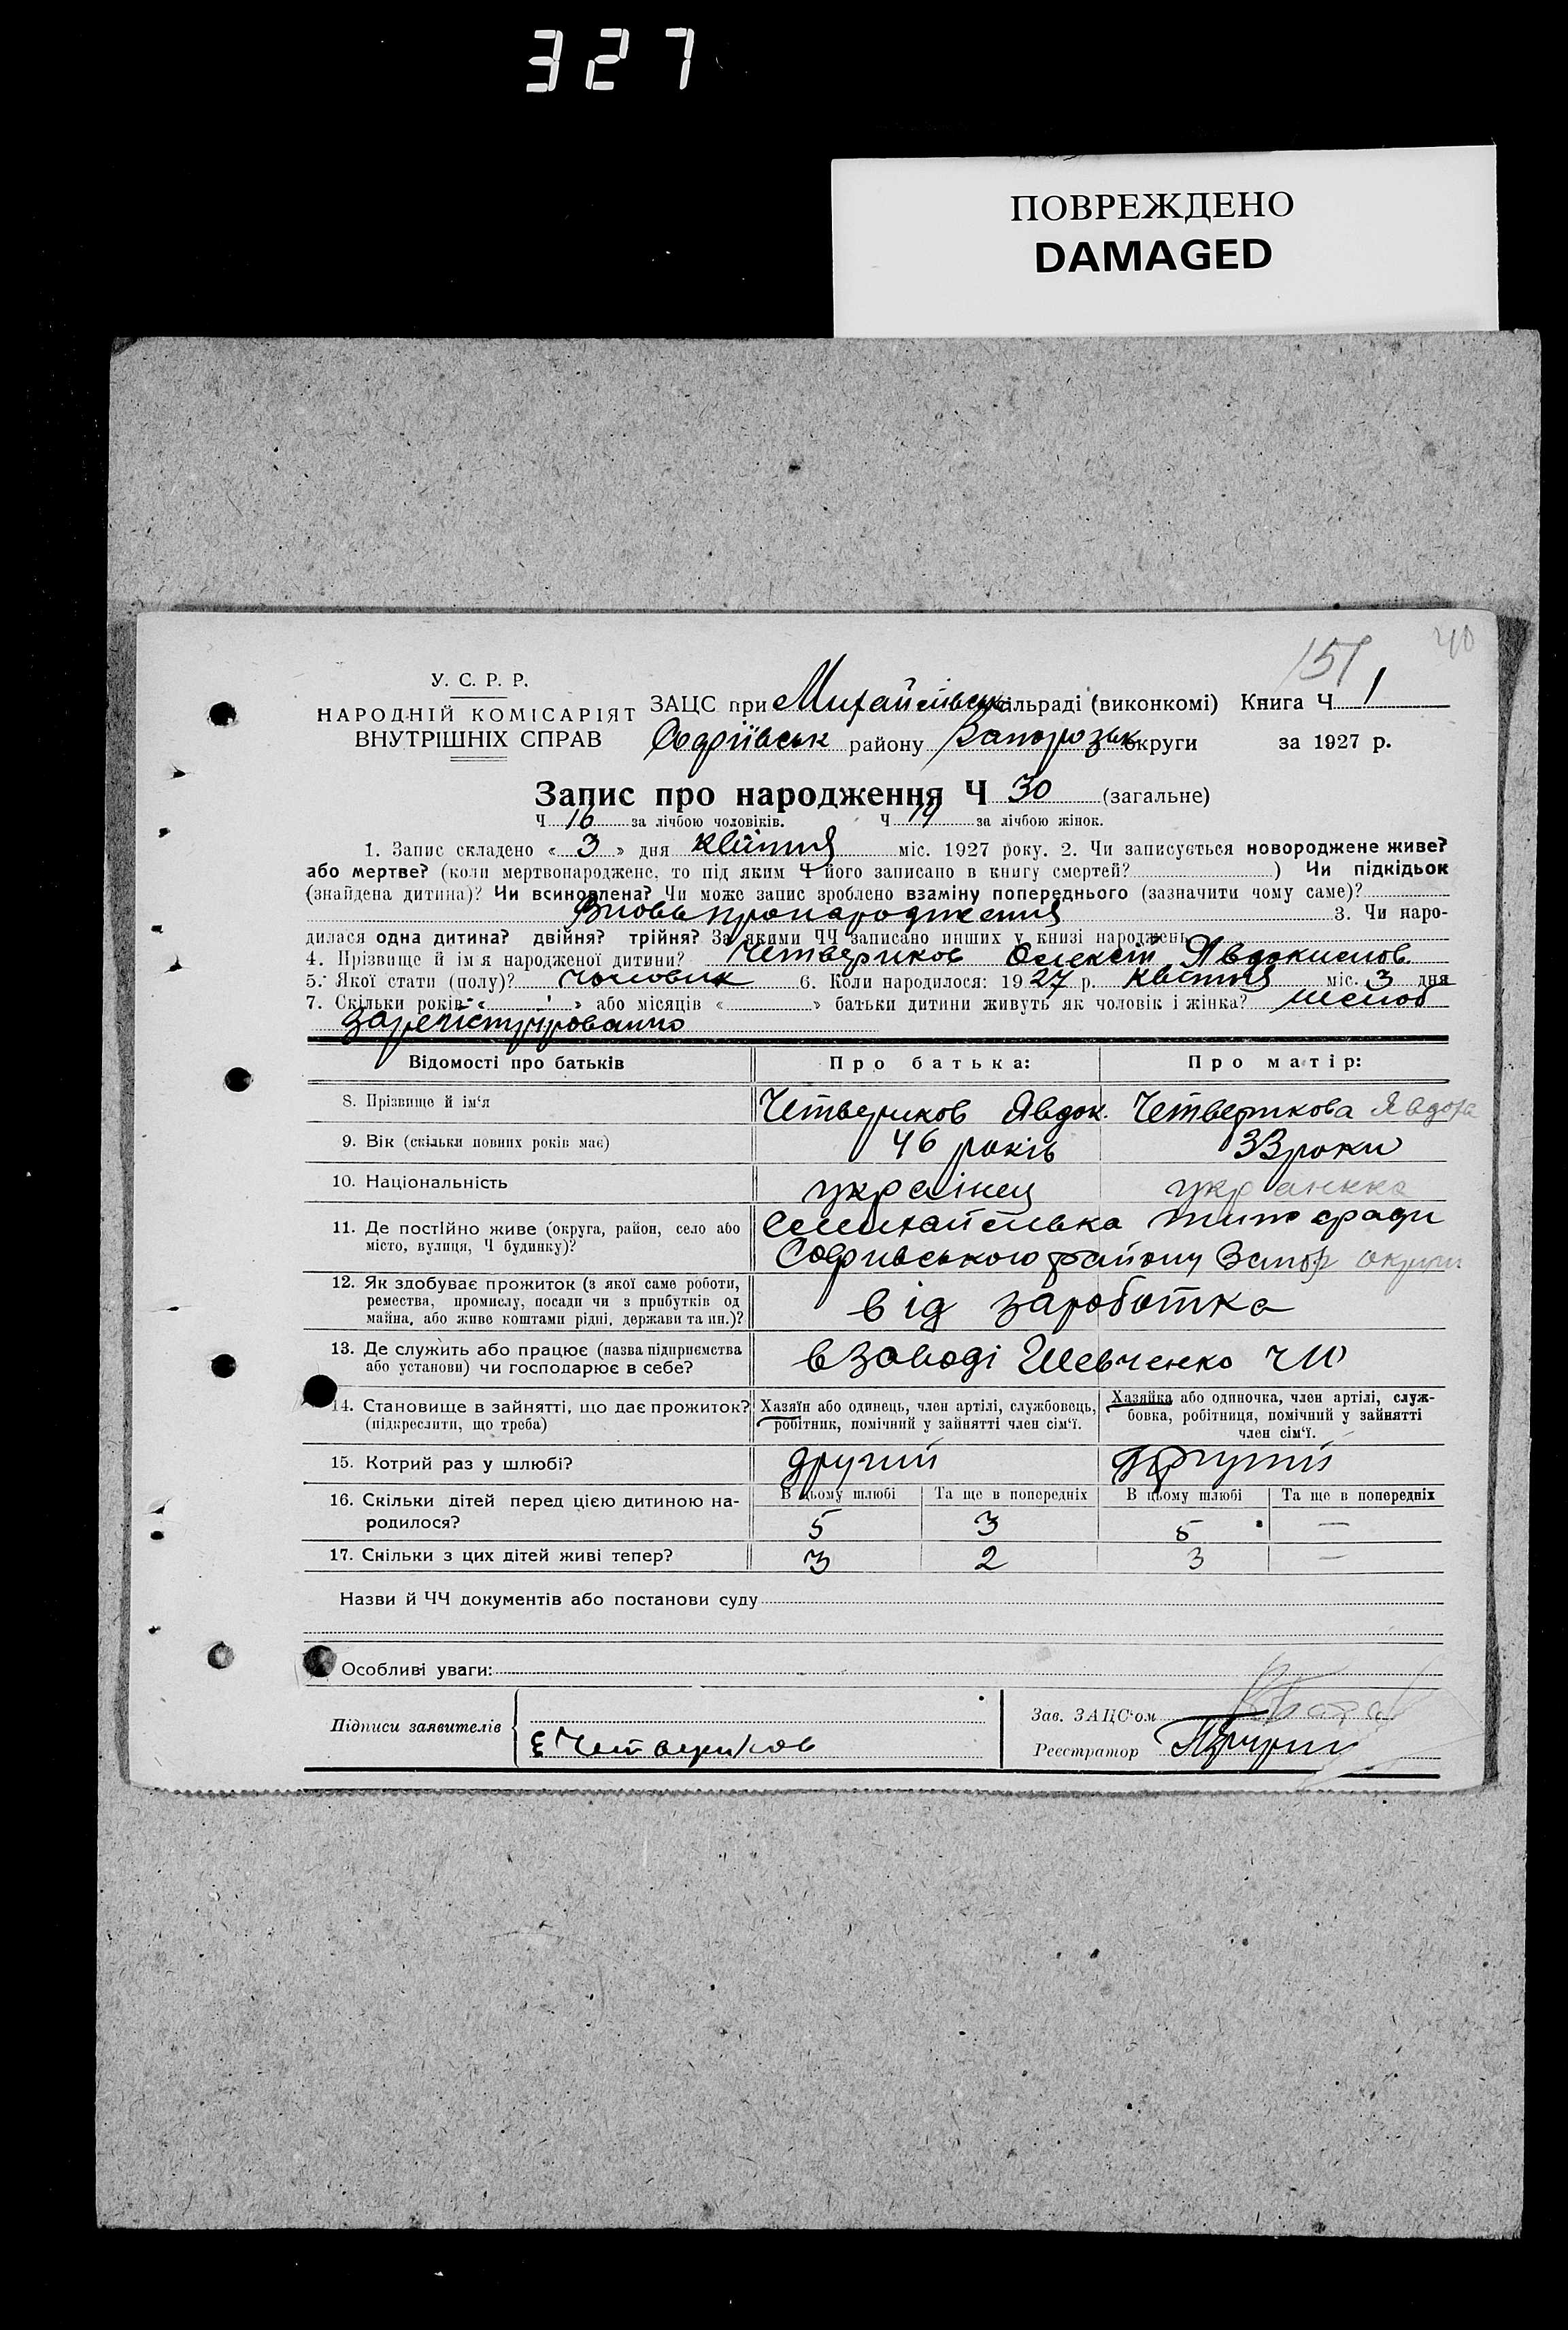 327
ПОВРЕЖДЕНО
DAMAGED
40
151
У. С. Р. Р.
НАРОДНІЙ КОМІСАРІЯТ
ВНУТРІШНІХ СПРАВ
ЗАЦС при Михайлівськ сільраді (виконкомі) Книга Ч 1
району Запорозьк округи за 1927 р.
Запис про народження Ч 30 (загальне)
Ч 16 за лічбою чоловіків. Ч 14 за лічбою жінок.
1. Запис складено « 3 » дня квітня міс. 1927 року. 2. Чи записується новороджене живе?
або мертве? (коли мертвонароджене, то під яким Ч його записано в книгу смертей? ) Чи підкідьок
(знайдена дитина)? Чи всиновлена? Чи може запис зроблено взаміну попереднього (зазначити чому саме)?
Вновь про народження 3. Чи наро-
дилася одна дитина? двійня? трійня? За якими ЧЧ записано инших у книзі народжень
4. Прізвище й ім'я народженої дитини? Четвериков Олексій Явдокимов
5. Якої стати (полу)? чоловик 6. Коли народилося: 1927 р. квітня міс. 3 дня
7. Скільки років « » або місяців « » батьки дитини живуть як чоловік і жінка? шлюб
зарегістріровано
Відомості про батьків Про батька: Про матір:
8. Прізвище й ім'я Четвериков Явдок. Четверикова Явдоха
9. Вік (скільки повних років має) 46 років 33 роки
10. Національність украінец украинка
11. Де постійно живе (округа, район, село або
місто, вулиця, Ч будинку)?
району Запор округи
12. Як здобуває прожиток (з якої саме роботи,
ремества, промислу, посади чи з прибутків од
майна, або живе коштами рідні, держави та ин.)?
від заработка
13. Де служить або працює (назва підприємства
або установи) чи господарює в себе?
в заводі Шевченко
14. Становище в зайнятті, що дає прожиток?
(підкреслити, що треба)
Хазяїн або одинець, член артілі, службовець,
робітник, помічний у зайнятті член сім'ї.
Хазяйка або одиночка, член артілі, служ-
бовка, робітниця, помічний у зайнятті
член сім'ї.
15. Котрий раз у шлюбі? другий
16. Скільки дітей перед цією дитиною на-
родилося?
В цьому шлюбі Та ще в попередніх В цьому шлюбі Та ще в попередніх
5 3 5 —
17. Скільки з цих дітей живі тепер? 3 2 3 —
Назви й ЧЧ документів або постанови суду
Особливі уваги:
Підписи заявителів
Е Четвериков
Зав. ЗАЦС'ом
Реєстратор